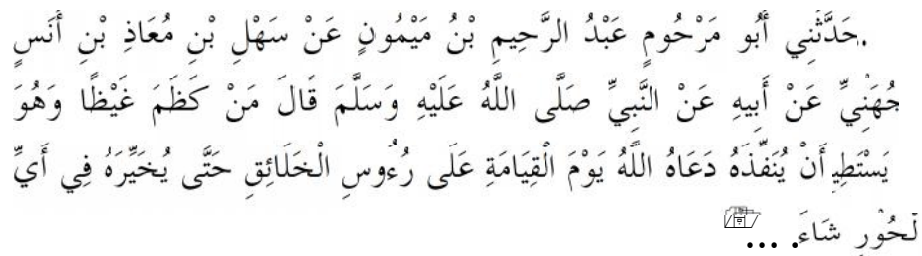 .حَدَّثَنِي أَبُو مَرْحُومٍ عَبْدُ الرَّحِيمِ بْنُ مَيْمُونٍ عَنْ سَهْلِ بْنِ مُعَاذِ بْنِ أَنَسٍ
جُهَنِيِّ عَنْ أَبِيهِ عَنْ النَّبِيِّ صَلَّى اللَّهُ عَلَيْهِ وَسَلَّمَ قَالَ مَنْ كَظَمَ غَيْظًا وَهُوَ
يَسْتَطِيـ أَنْ يُنَفِّذَهُ دَعَاهُ اللَّهُ يَوْمَ الْقِيَامَةِ عَلَى رُءُوسِ الْخَلَائِقِ حَتَّى يُخَيِّرَهُ فِي أَيِّ
لْحُورِ شَاءَ. ...